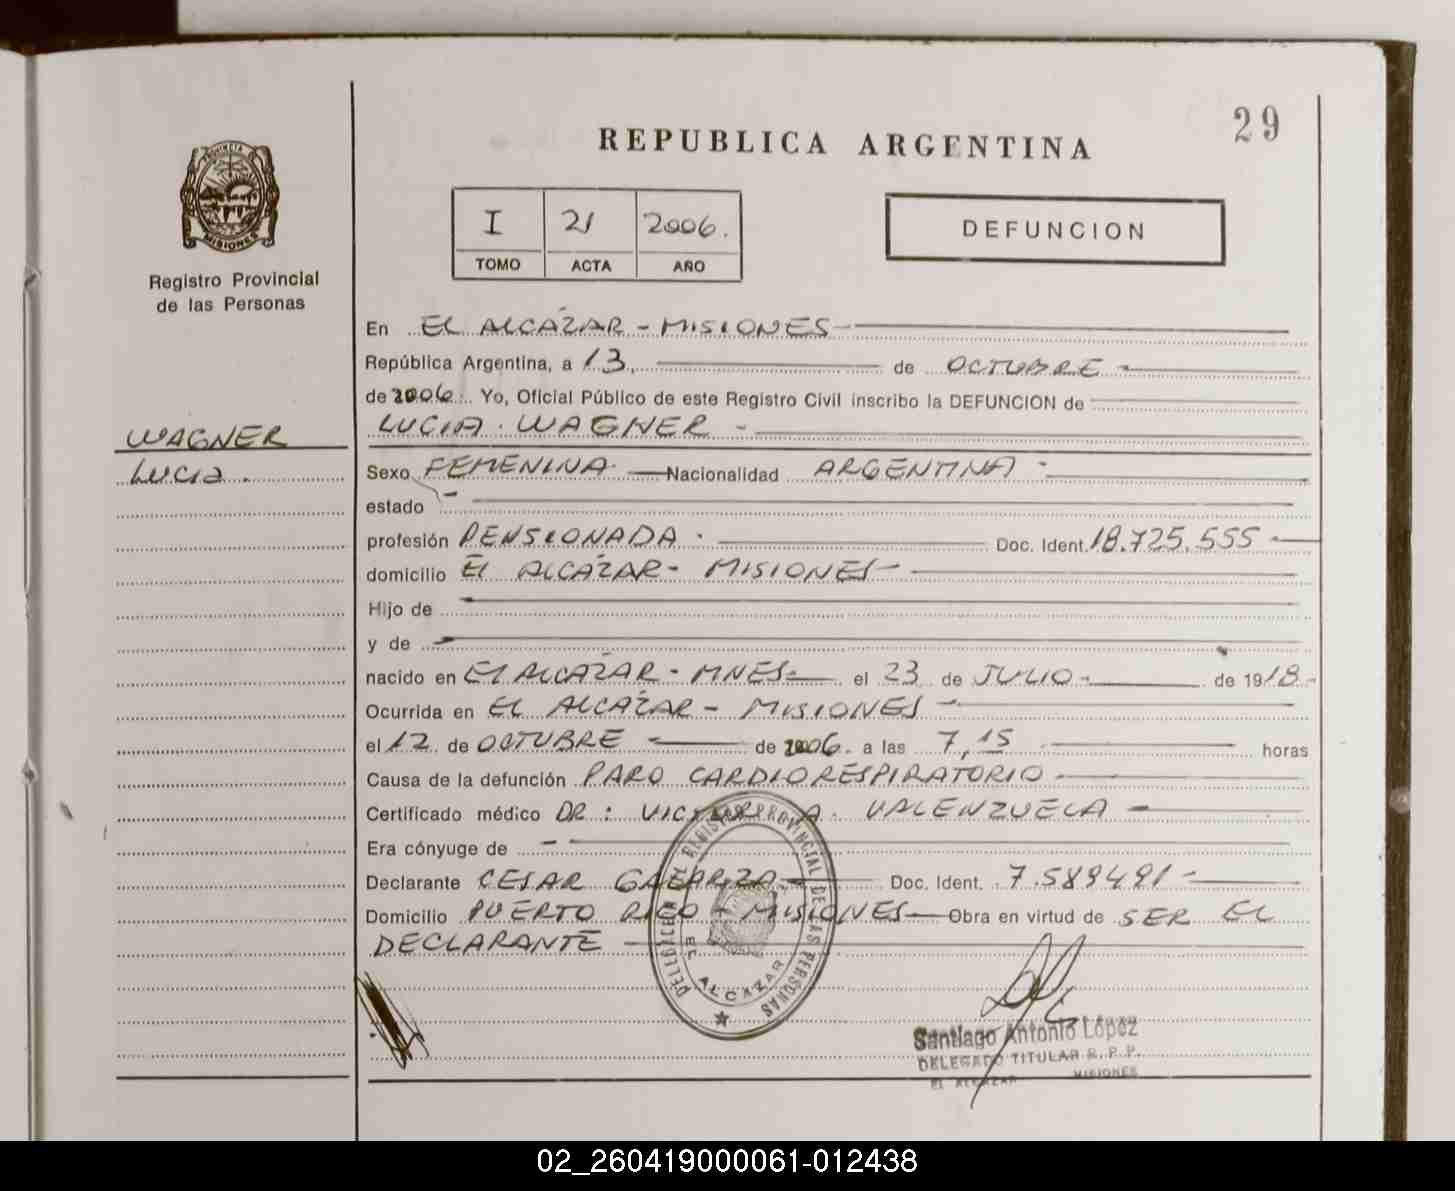 29
REPUBLICA ARGENTINA
PROVINCIA
MISIONES
Registro Provincial
de las Personas
I 21 2006.
TOMO ACTA AÑO
DEFUNCION
En EL ALCAZAR - MISIONES -
República Argentina, a 13, de OCTUBRE -
de 2006. Yo, Oficial Público de este Registro Civil inscribo la DEFUNCION de
WAGNER
LUCIA. WAGNER -
Lucia.
Sexo FEMENINA. Nacionalidad ARGENTINA -
estado -
profesión PENSIONADA. Doc. Ident. 18.725.555 -
domicilio El ALCAZAR - MISIONES -
Hijo de
y de
nacido en El ALCAZAR - MNES- el 23 de JULIO - de 1918 -
Ocurrida en EL ALCAZAR - MISIONES -
el 12 de OCTUBRE de 2006. a las 7,15 horas
Causa de la defunción PARO CARDIORESPIRATORIO -
Certificado médico DR: VICTOR A. VALENZUELA -
Era cónyuge de -
Declarante CESAR GALARZA - Doc. Ident. 7.589491 -
Domicilio PUERTO RICO - MISIONES - Obra en virtud de SER EL
DECLARANTE -
DELEGACION REGISTRO PROVINCIAL DE LAS PERSONAS
EL ALCAZAR
Santiago Antonio López
DELEGADO TITULAR R. P. P.
EL ALCAZAR MISIONES
02_260419000061-012438